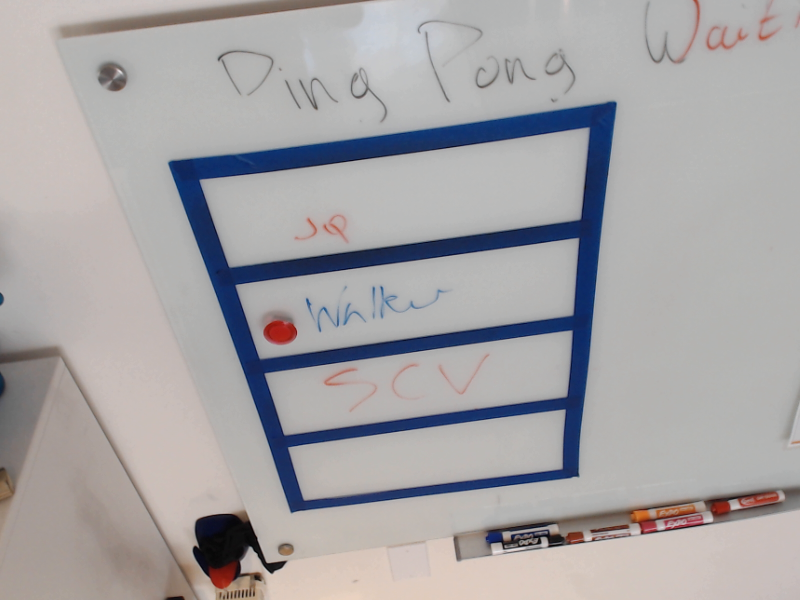 Ping Pong Wait
JQ
Walker
SCV
EXPO
EXPO
EXPO
EXPO